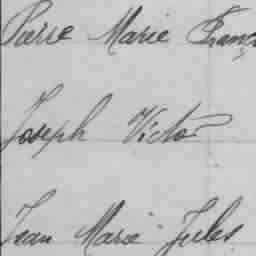 Pierre Marie Franç
Joseph Victor
Jean Marie Jules